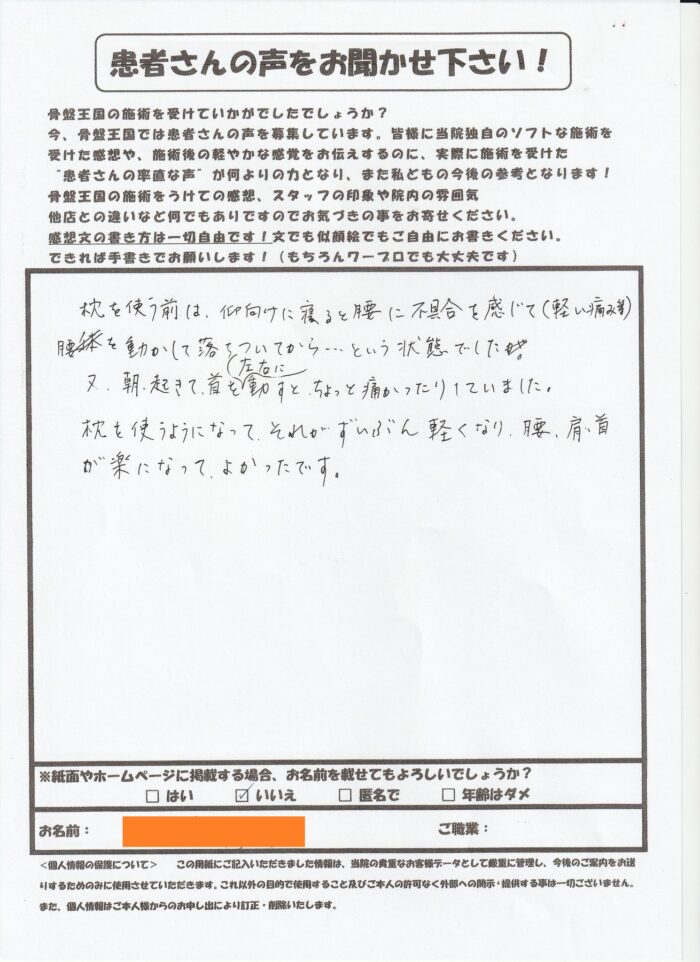 患者さんの声をお聞かせ下さい！
骨盤王国の施術を受けていかがでしたでしょうか？
今、骨盤王国では患者さんの声を募集しています。皆様に当院独自のソフトな施術を
受けた感想や、施術後の軽やかな感覚をお伝えするのに、実際に施術を受けた
“患者さんの率直な声”が何よりの力となり、また私どもの今後の参考となります！
骨盤王国の施術をうけての感想、スタッフの印象や院内の雰囲気
他店との違いなど何でもありですのでお気づきの事をお寄せください。
感想文の書き方は一切自由です！文でも似顔絵でもご自由にお書きください。
できれば手書きでお願いします！（もちろんワープロでも大丈夫です）
枕を使う前は、仰向けに寝ると腰に不具合を感じて（軽い痛み等）
腰を動かして落ちついてから…という状態でした。
左右に
又、朝、起きて、首を動すと、ちょっと痛かったりしていました。
枕を使うようになって、それがずいぶん軽くなり、腰、肩、首
が楽になって、よかったです。
※紙面やホームページに掲載する場合、お名前を載せてもよろしいでしょうか？
□ はい ☑ いいえ □ 匿名で □ 年齢はダメ
お名前： ご職業：
＜個人情報の保護について＞ この用紙にご記入いただきました情報は、当院の貴重なお客様データとして厳重に管理し、今後のご案内をお送
りするためのみに使用させていただきます。これ以外の目的で使用すること及びご本人の許可なく外部への開示・提供する事は一切ございません。
また、個人情報はご本人様からのお申し出により訂正・削除いたします。